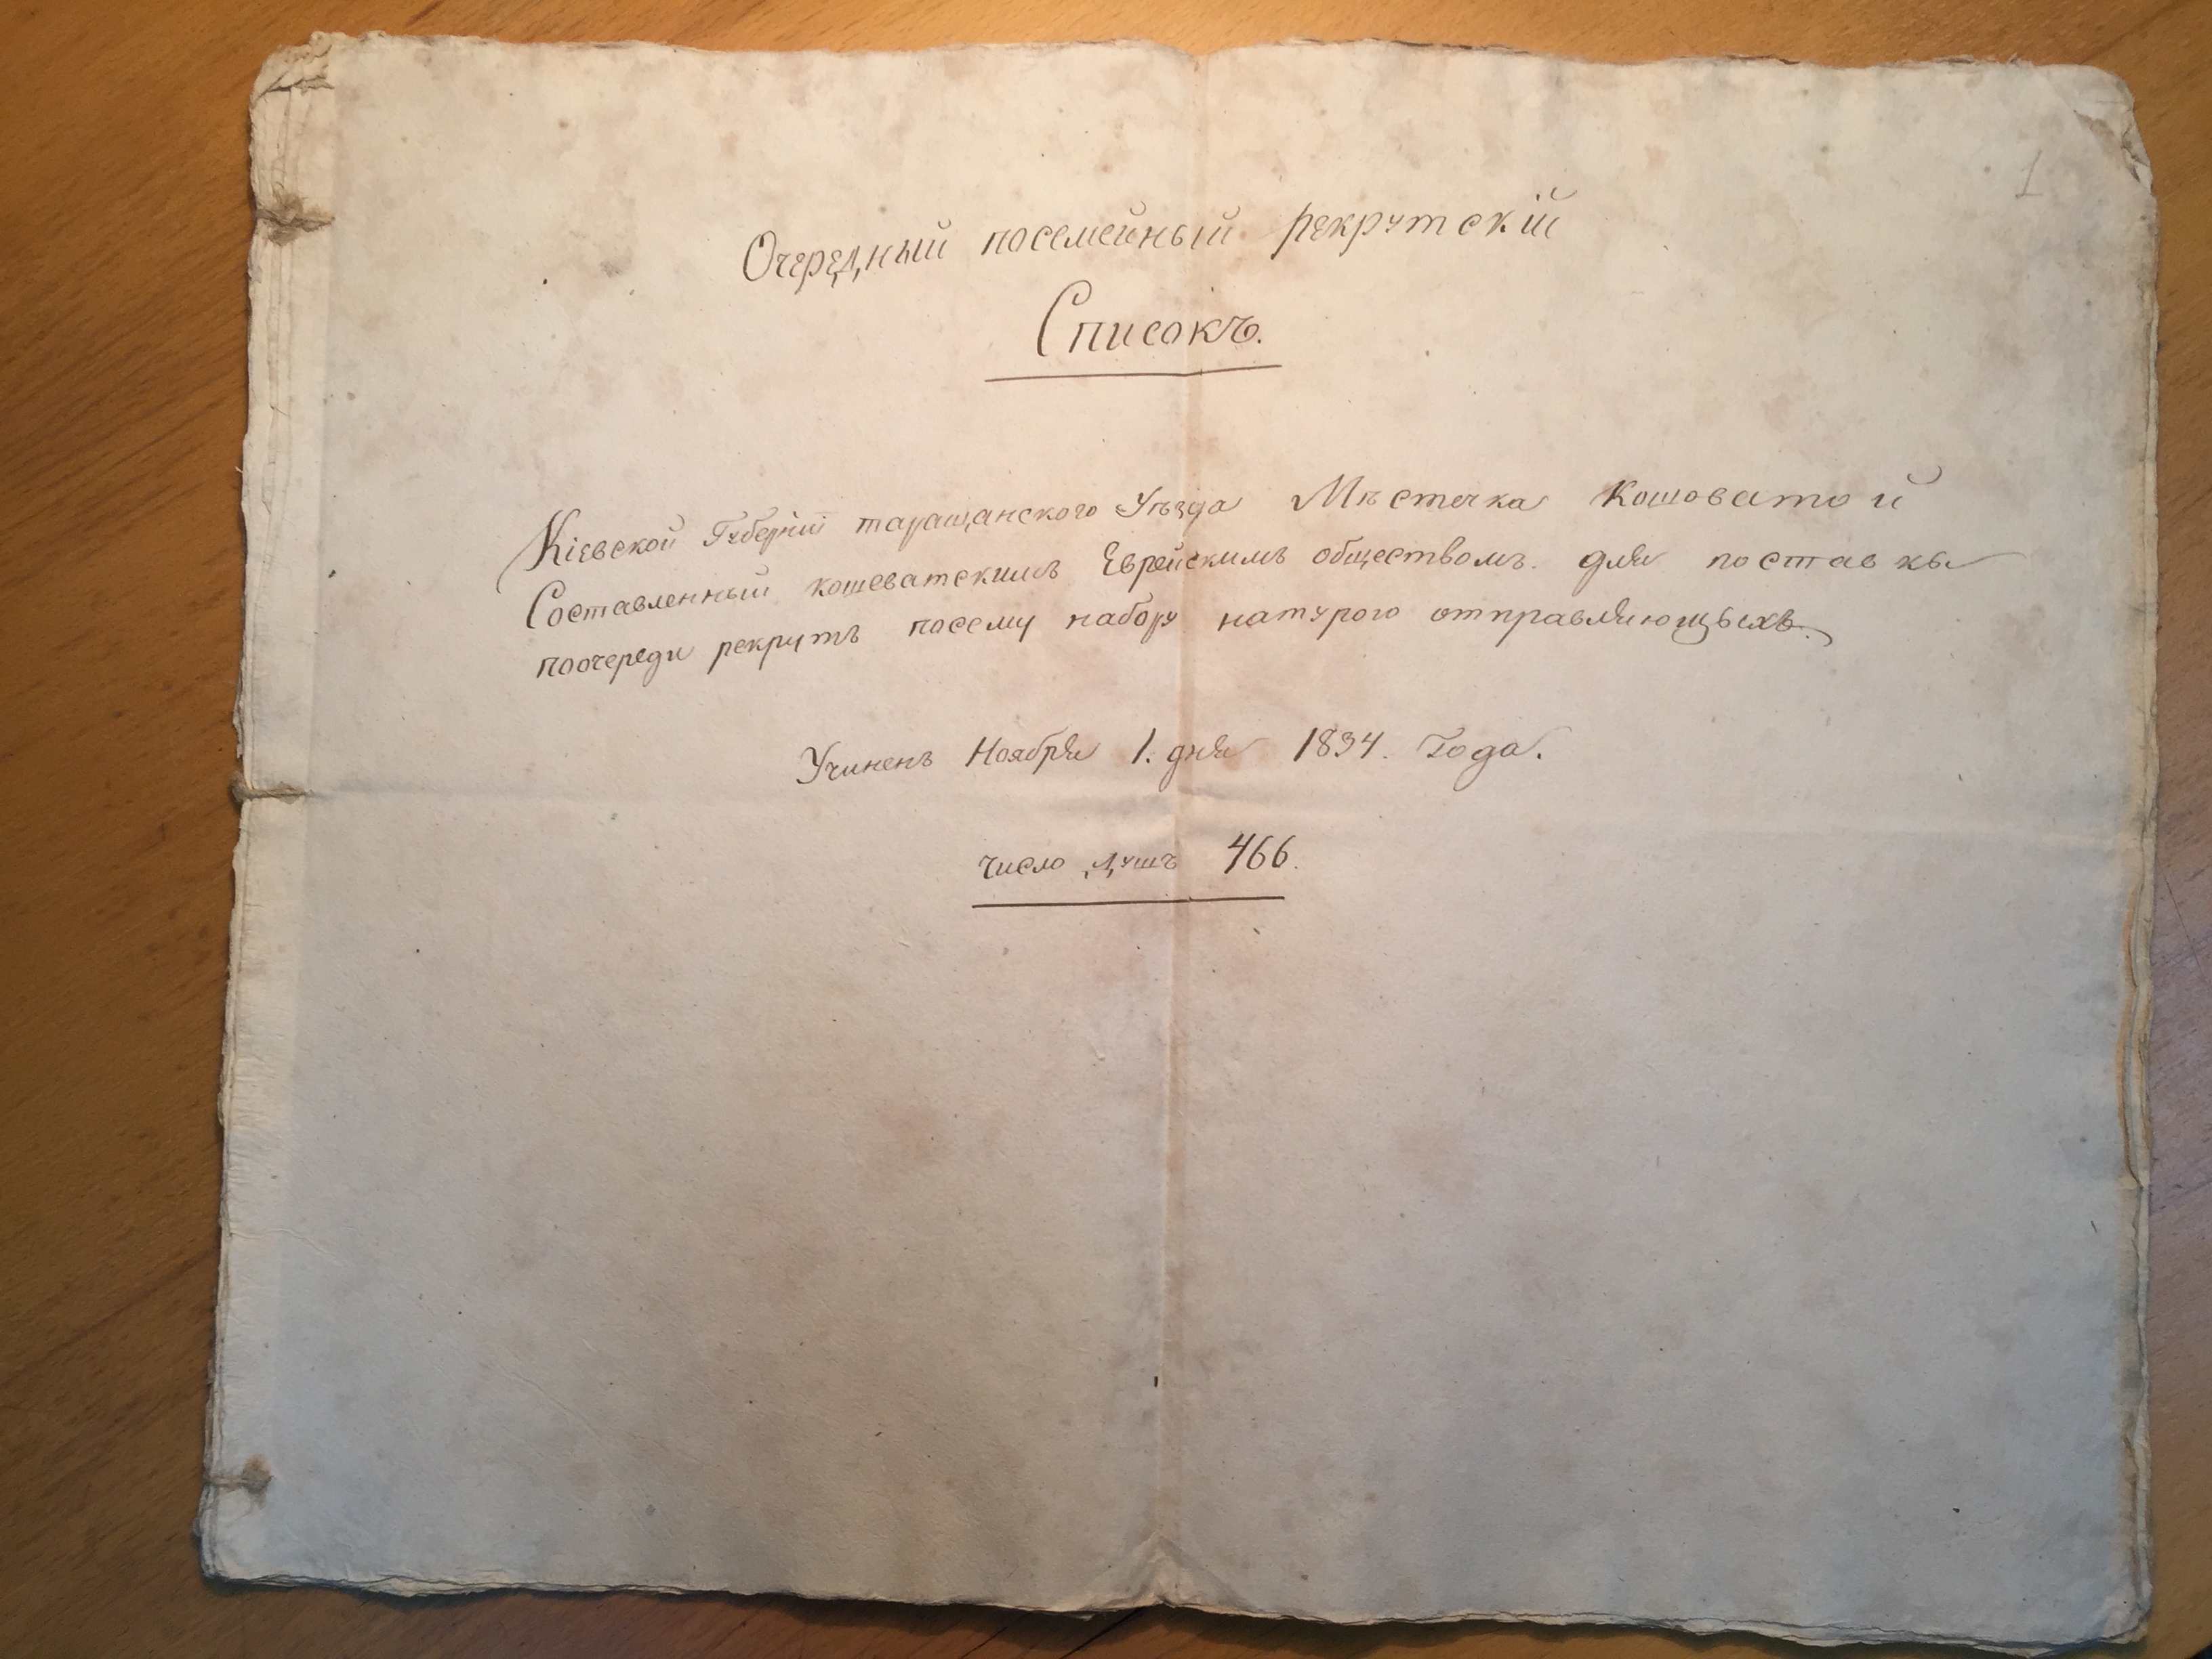 1
Очередный посемейный рекрутскій
Списокъ.
Кіевской Губерніи таращанского Уѣзда Мѣстечка Кошоватой
Составленный кошеватскимъ Еврейскимъ обществомъ. для поставкы
поочереди рекрутъ посему набору натурого отправляющыхъ.
Учиненъ Ноября 1. дня 1834. Года.
число душъ 466.